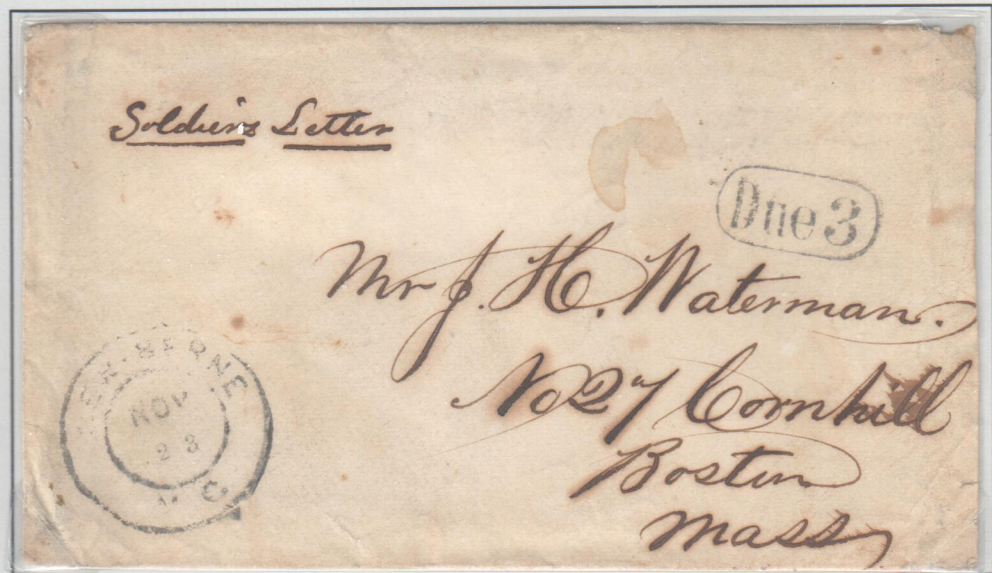 Soldier's Letter
Due 3
Mr J. H. Waterman.
No 27 Cornhill
Boston
Mass
NEW-BERNE
NOV
23
N.C.